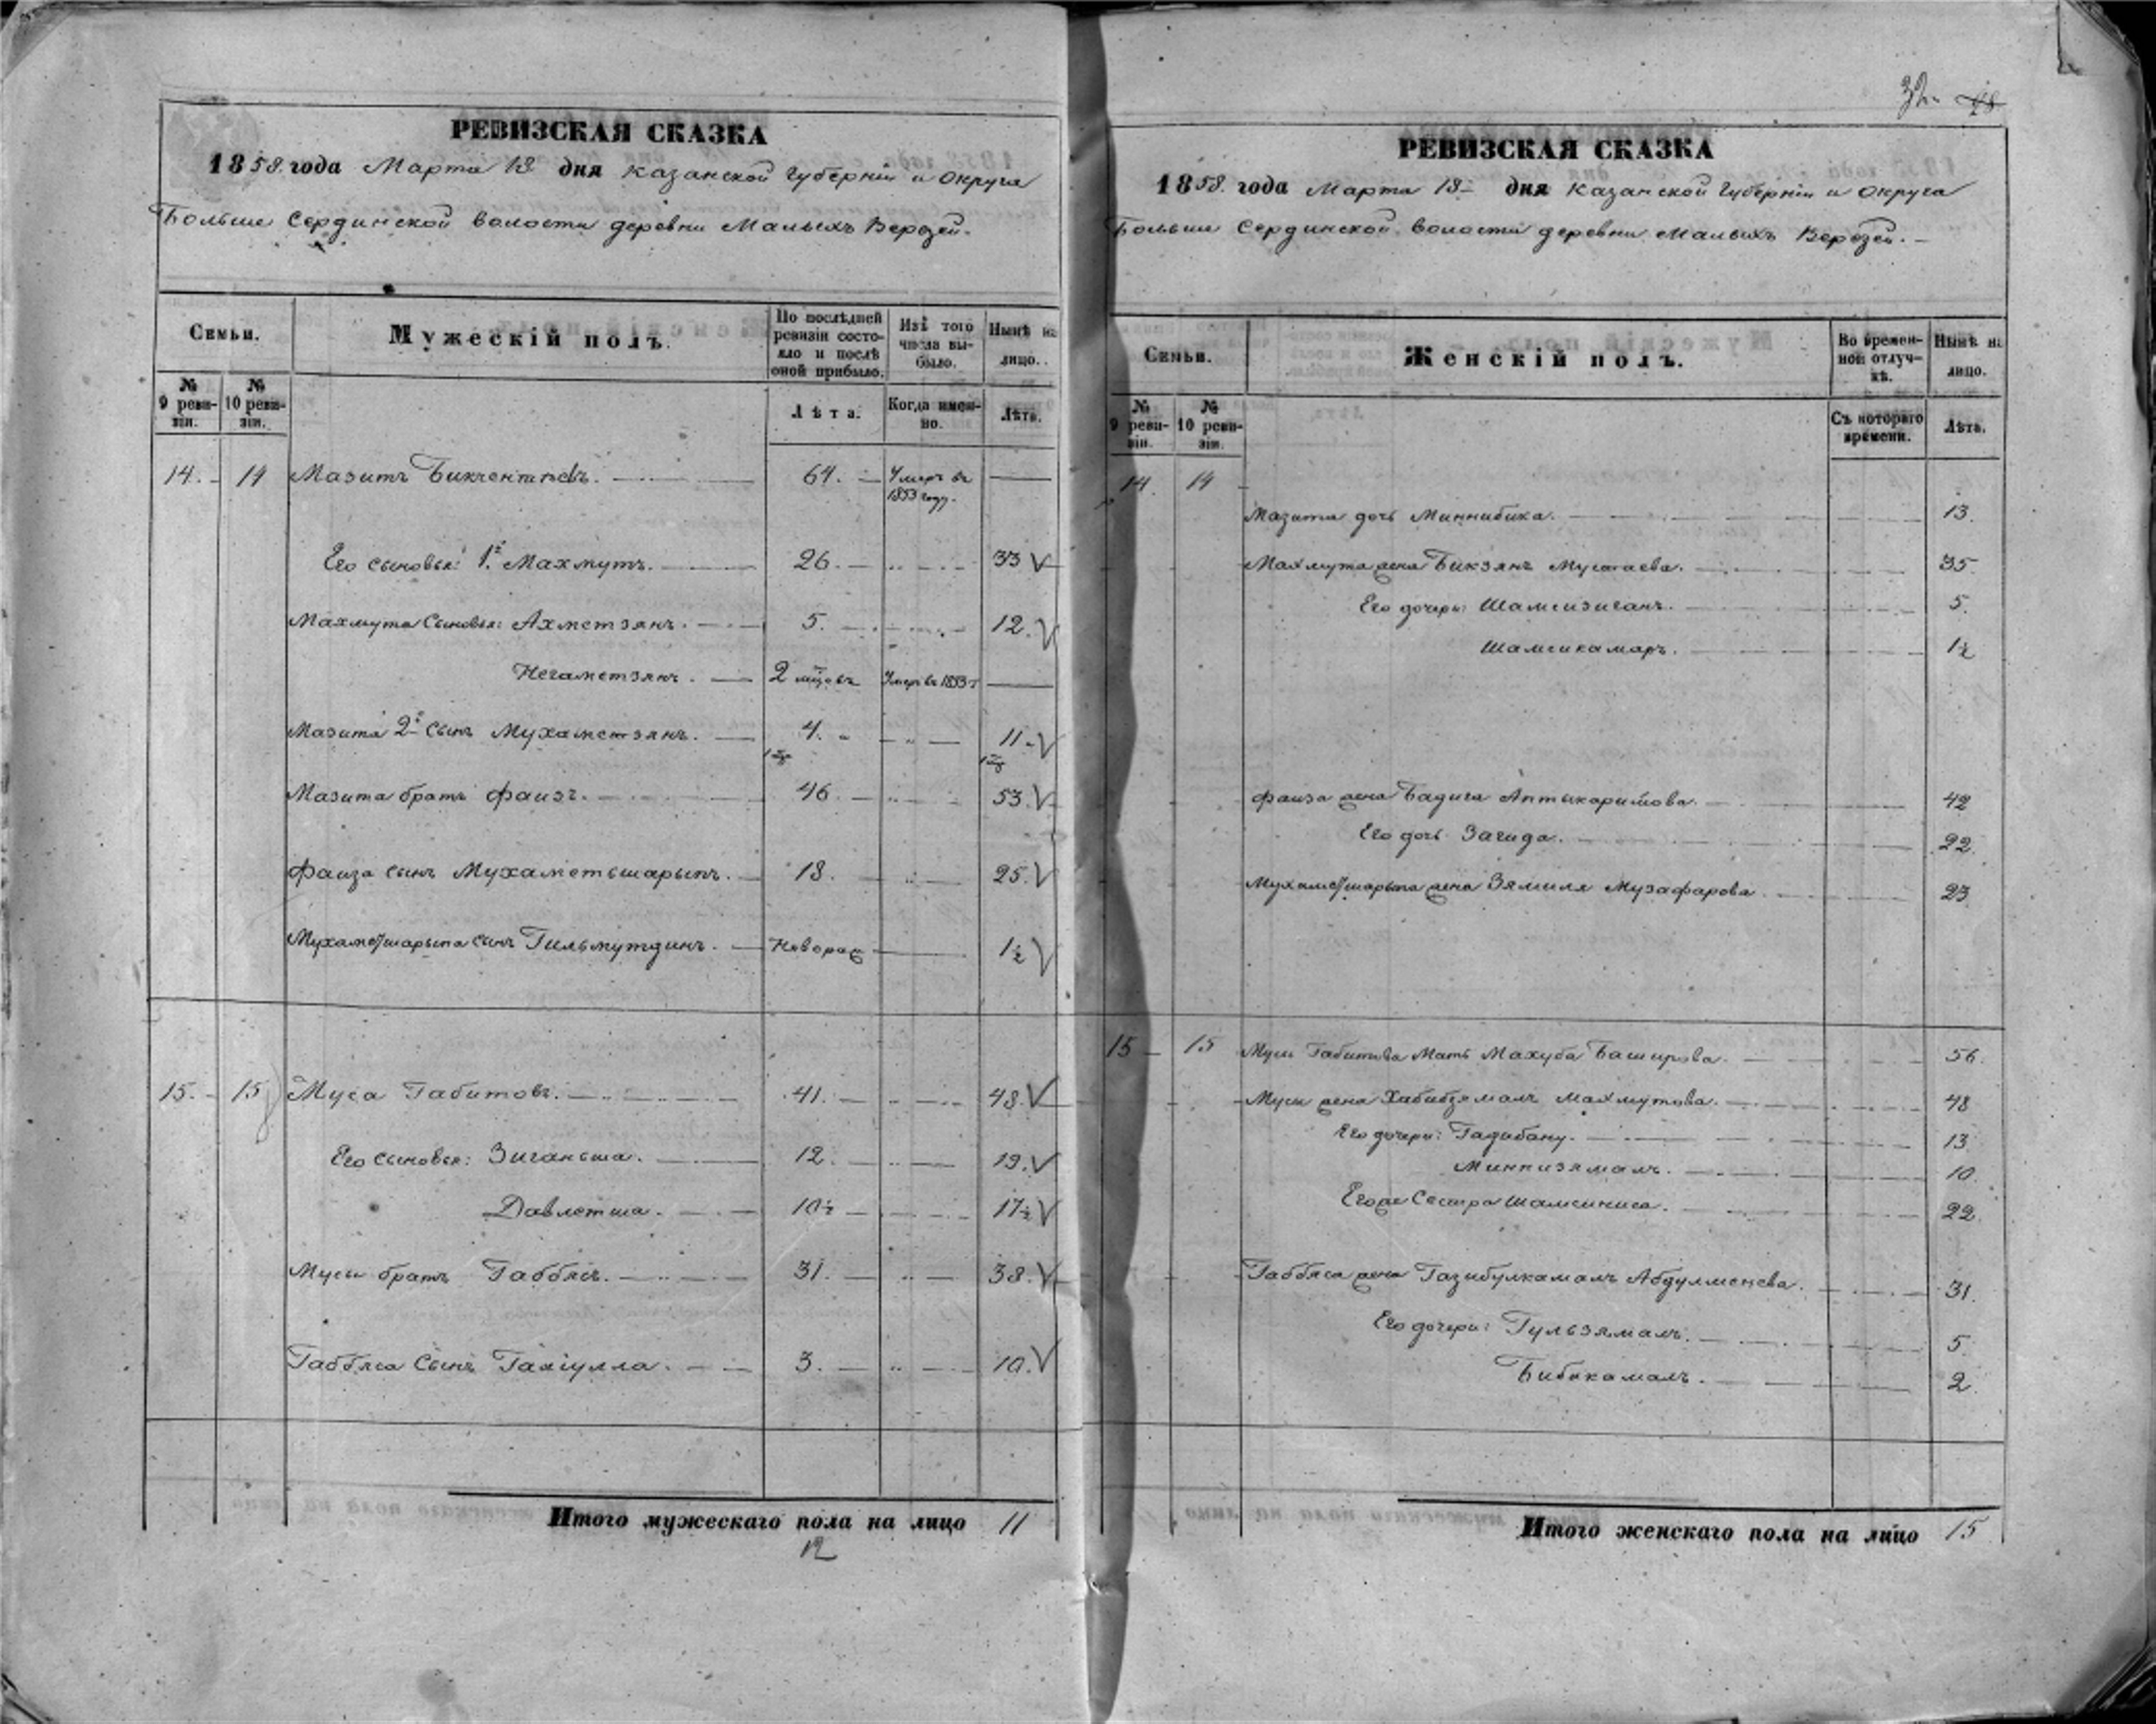 РЕВИЗСКАЯ СКАЗКА
1858. года Марта 13 дня Казанской Губерніи и Округа
Больше Сердинской волости деревни Малыхъ Верезей.
Семьи.
Мужескій полъ.
По послѣдней ревизіи состояло и послѣ оной прибыло.
Изъ того числа выбыло.
Нынѣ на лицо.
№ 9 ревизіи.
№ 10 ревизіи.
Лѣта.
Когда именно.
Лѣта.
14. 14 Мазитъ Бикчентаевъ. 64. Умеръ въ 1853 году.
Его сыновья: 1й Махмутъ. 26. 33
Махмута Сыновья: Ахметзянъ. 5. 12.
Негаметзянъ. 2 мцовъ Умеръ въ 1853 г
Мазита 2й Сынъ Мухаметзянъ. 4. 11.
Мазита братъ Фаизъ. 46. 53.
Фаиза сынъ Мухаметьшарыпъ. 18. 25.
Мухаметшарыпа сынъ Гильмутдинъ. Новорож 1½
15. 15 Муса Габитовъ. 41. 48.
Его сыновья: Зиганьша. 12. 19.
Давлетша. 10½ 17½
Мусы братъ Габбясъ. 31. 38.
Габбяса Сынъ Галіулла. 3. 10.
Итого мужескаго пола на лицо 11
12
РЕВИЗСКАЯ СКАЗКА
1858. года Марта 13 дня Казанской Губерніи и Округа
Больше Сердинской волости деревни Малыхъ Верезей.
Семьи.
Женскій полъ.
Во временной отлучкѣ.
Нынѣ на лицо.
№ 9 ревизіи.
№ 10 ревизіи.
Съ котораго времени.
Лѣта.
14. 14
Мазита дочь Миннибика. 13.
Махмута жена Бикзянъ Мусагаева. 35.
Его дочери: Шамсизиганъ. 5.
Шамсикамаръ. 1½
Фаиза жена Бадига Аптыкаримова. 42
Его дочь Загида. 22.
Мухаметшарыпа жена Зямиля Музафарова 23
15 15 Мусы Габитова Мать Махуба Баширова. 56.
Мусы жена Хабибзямалъ Махмутова. 48
Его дочери: Гадибану. 13
Миннизямалъ. 10.
Егоже Сестра Шамсиниса. 22
Габбяса жена Газибулкамалъ Абдулменева. 31.
Его дочери: Гульзямалъ. 5.
Бибикамалъ. 2.
Итого женскаго пола на лицо 15